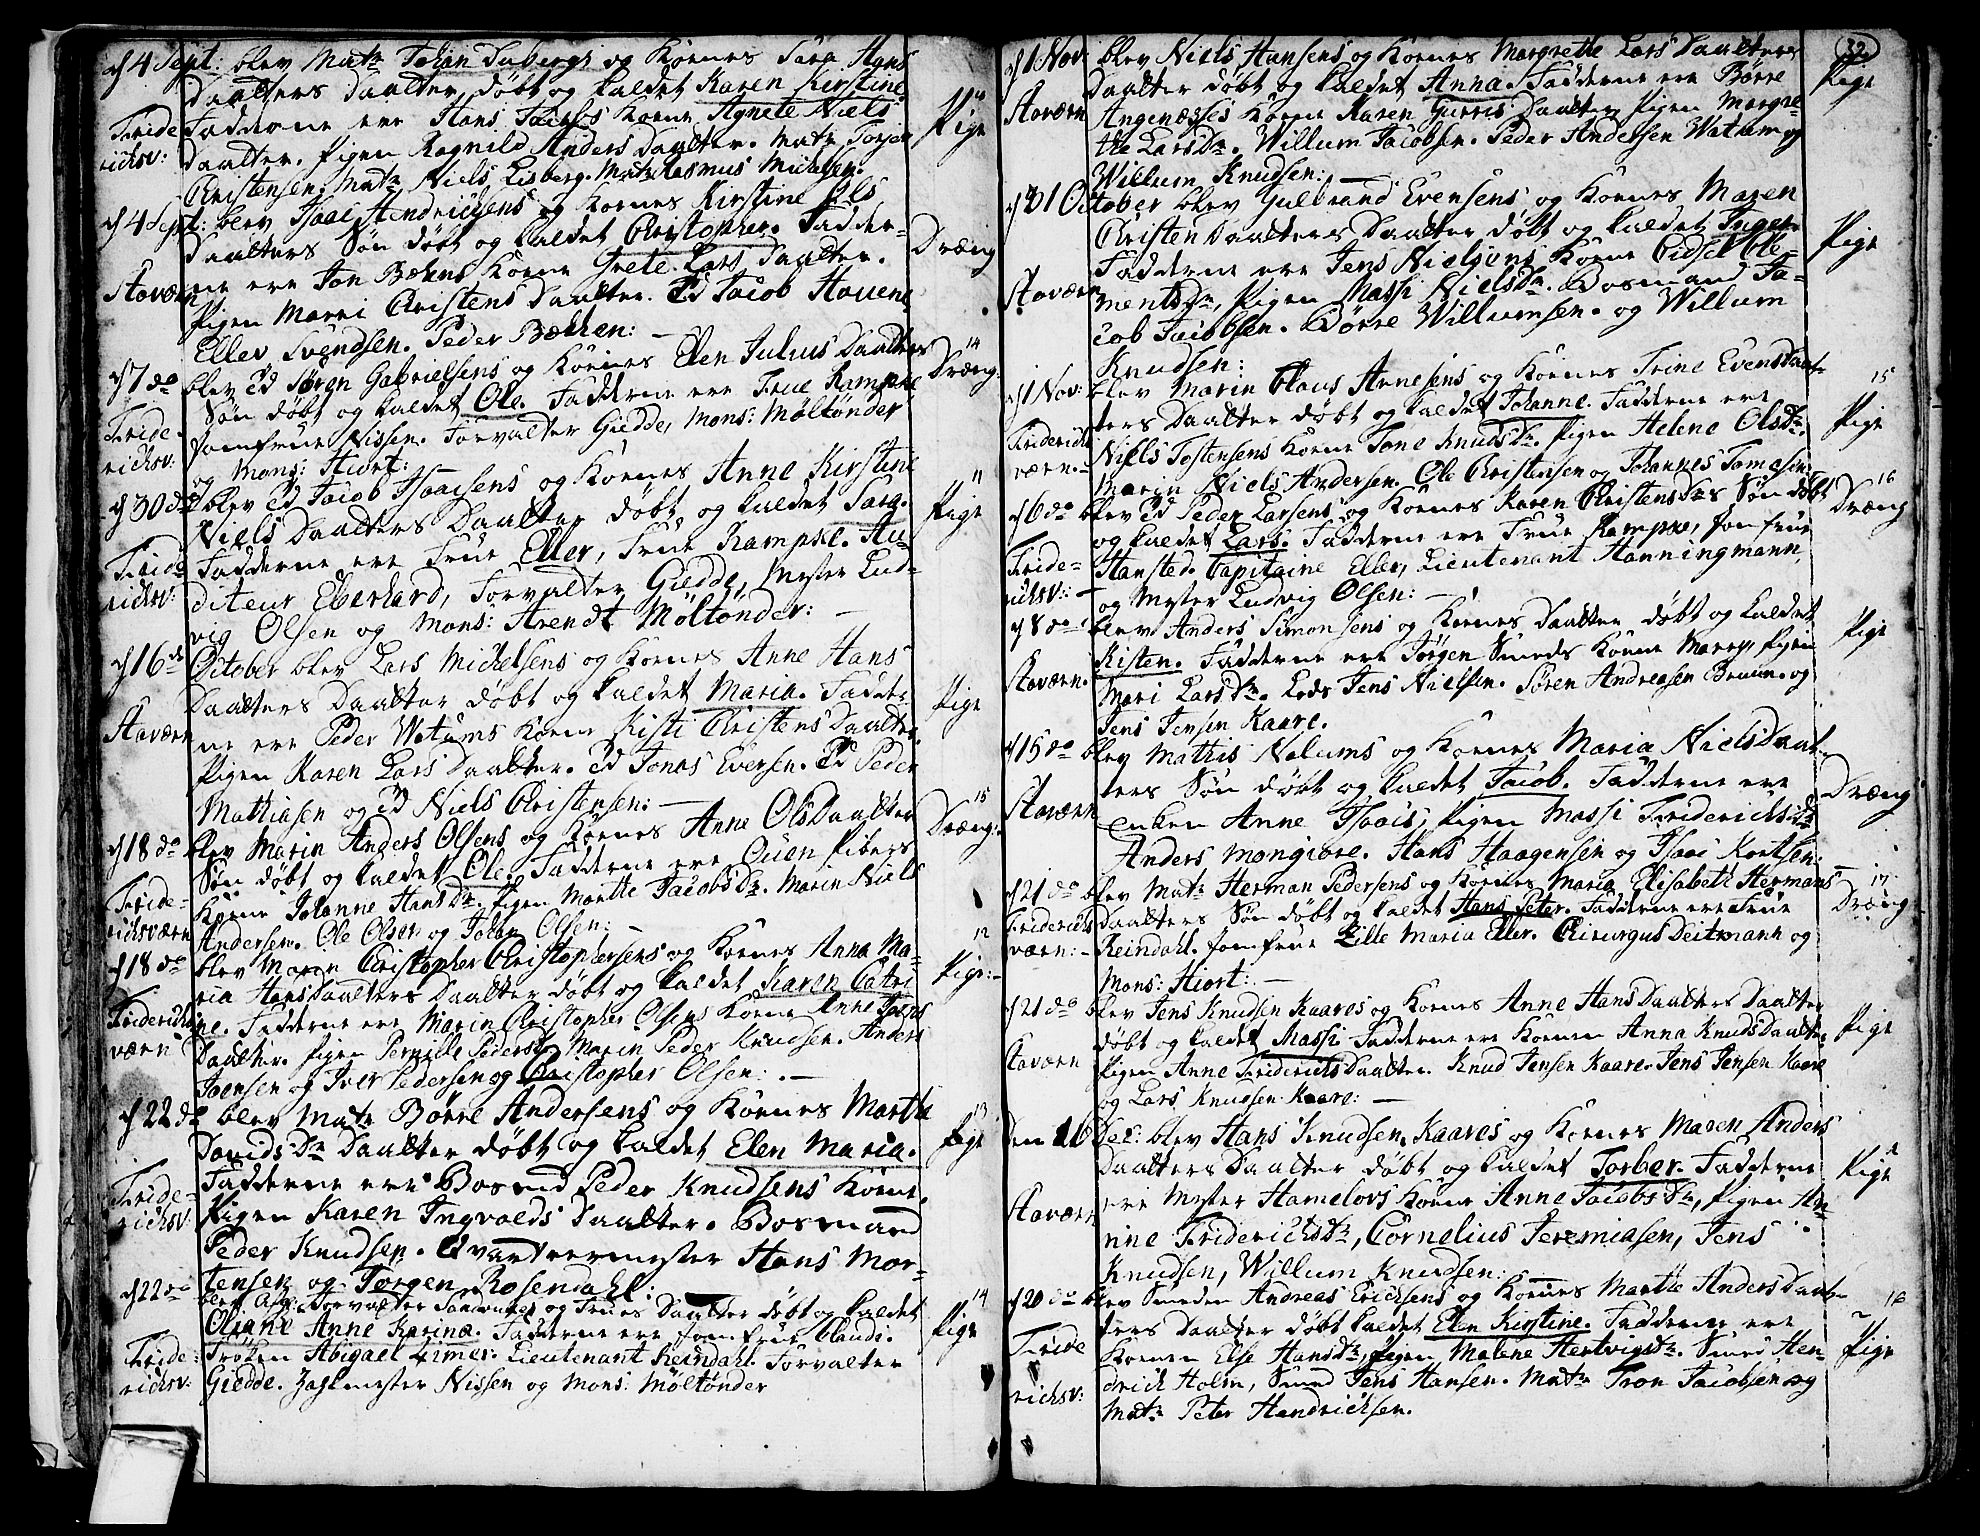 d 4 Sept: blev Matr Johan Dubergs og Kones Sara Hans
Daatters Daatter døbt og kaldet Karen Kirstine
Fadderne ere Hans Kone Agnete Niels
Daatter. Pigen Ragnild Anders Daatter. Matr Torjer
Christensen, Matr Niels Lisberg. Matr Rasmus Michelsen.
Fride
richsv:
Pige
d 4 Sept: blev Isaac Hendrichsens og Kones Kirstine Ols
Daatters Søn døbt og kaldet Christopher. Fadder-
ne ere Jon Kone Grete Lars Daatter.
Pigen Marri Christens Daatter. Jacob
Eller Svendsen. Peder Bækken:
Staværn
Dræng
d 7 do blev Søren Gabrielsens og Kones Elen Julius Daatters
Søn døbt og kaldet Ole. Fadderne ere Frue Kampke
Jomfrue Nissen. Forvalter Giedde, Mons: Möltönder
og Mons: Hiort:
Fride
richsv:
14
Dræng:
d 30 do blev Jacob Isaacsens og Kones Anne Kirstine
Niels Daatters Daatter døbt og kaldet Sara.
Fadderne ere Frue Eller, Frue Kampke. Au-
diteur Eberhard, Forvalter Giedde, Mester Lud-
vig Olsen og Mons: Arendt Möltönder: —
Fride
richsv:
11
Pige
d 16 de October blev Lars Mickelsens og Kones Anne Hans
Daatters Daatter døbt og kaldet Maria. Fadder
ne ere Peder Watums Kone Kisti Christens Daatter.
Pigen Karen Lars Daatter. Jonas Eversen. Peder
Mathiasen og Niels Christensen: —
Staværn
Pige
d 18 do blev Marin Anders Olsens og Kones Anne Ols Daatter
Søn døbt og kaldet Ole. Fadderne ere Ouen Pibers
Kone Johanne Hans Dr. Pigen Marthe Jacobs Dr. Marin Niels
Andersen. Ole Olsen og Johan Olsen: —
Fride=
richsværn
15
Dræng:
d 18 do blev Marin Christopher Christophersens og Kones Anna Ma-
ria Hans Daatters Daatter døbt og kaldet Karen Catri
ne. Fadderne ere Marin Christopher Olsens Kone Anne
Daatter. Pigen Pernille Peders Dr Marin Peder Knudsen. Anders
Joensen og Iver Pedersen og Christopher Olsen: . —
Friderichs
værn
12
Pige: —
d 22 do blev Matr Börre Andersens og Kones Marthe
Davids Dr Daatter døbt og kaldet Elen Maria.
Fadderne ere Bosmd Peder Knudsens Kone.
Pigen Karen Ingvolds Daatter. Bosmand
Peder Knudsen. Qvarteermester Hans Mor-
tensen og Jørgen Rosendahl:
Fride=
richsv:
13
Pige
d 22 do blev Forvalter og Frues Daatter døbt og kaldet
Anne Karina. Fadderne ere Jomfrue Claudi.
Frøken Abigael Lieutenant Reindahl. Forvalter
Giedde. Nissen og Mons: Möltönder
Fride:
richsv:
14
Pige
32
d 1 Nov: blev Niels Hansens og Kones Margrethe Lars Daatters
Daatter døbt og kaldet Anna. Fadderne ere Börre
Kone Karen Gurris Daatter, Pigen Margre-
the Lars Dr. Willum Jacobsen. Peder Andersen Watum og
Willum Knudsen: —
Staværn
Pige
d 31 October blev Gulbrand Evensens og Kones Maren
Christen Daatters Daatter døbt og kaldet Inger
Fadderne ere Jens Nielsens Kone Cle-
ments Dr, Pigen Massi Niels Dr. Bosmand Ja-
cob Jacobsen. Börre Willumsen. og Willum
Knudsen:
Staværn
Pige
d 1 Nov: blev Marin Claus Arnesens og Kones Trine Evens Daat-
ters Daatter døbt og kaldet Johanne. Fadderne ere
Niels Tostensens Kone Tone Knuds Dr. Pigen Helene Ols Dr.
Marin Niels Andersen. Ole Christensen og Johannes Tomesen:
Friderichs
værn. —
15
Pige
d 6 do blev Peder Larsens og Kones Karen Christens Drs Søn døbt
og kaldet Lars. Fadderne ere Frue Kampke, Jomfrue
Hansted. Capitaine Eller, Lieutenant Hanningmann,
og Mester Ludvig Olsen: —
Fride=
richsv: —
16
Dræng
d 8 do blev Anders Simonsens og Kones Daatter døbt og kaldet
Kisten. Fadderne ere Jørgen Smeds Kone Marry, Pigen
Mari Lars Dr. Lods Jens Nielsen. Søren Andreasen Bruun. og
Jens Jensen Kaare.
Staværn.
Pige
d 15 do blev Mathis Nalums og Kones Maria Niels Daat
ters Søn døbt og kaldet Jacob. Fadderne ere
enken Anne Isacs, Pigen Massi Friderichs Dr
Anders Mongiore. Hans Haagensen og Isaac Kortsen:
Staværn
Dræng
d 21 do blev Matr Herman Pedersens og Kones Maria Elisabeth Hermans
Daatters Søn døbt og kaldet Hans Peter. Fadderne ere Frue
Reindahl. Jomfrue Lille Maria Eller. Chirurgus Deitmann og
Mons: Hiort: —
Friderichs
værn: —
17
Dræng
d 21 do blev Jens Knudsen Kaares og Kones Anne Hans Daatters Daatter
døbt og kaldet Massi Fadderne ere Konen Anna Knuds Daatter
Pigen Anne Friderichs Daatter. Knud Jensen Kaare. Jens Jensen Kaare
og Lars Knudsen Kaare: —
Staværn
Pige
den 10 Dec: blev Hans Knudsen Kaares og Kones Maren Anders
Daatters Daatter døbt og kaldet Torber. Fadderne
ere Mester Hamelovs Kone Anne Jacobs Dr, Pigen An-
nne Friderichs Dr, Cornelius Jeremiasen, Jens
Knudsen, Willum Knudsen:
Staværn
Pige
d 20 do blev Smeden Andreas Ericksens og Kones Marthe Anders Daat-
ters Daatter døbt kaldet Elen Kirstine. Fadderne ere
Konen Else Hans Dr, Pigen Malene Hertvigs Dr. Smed Hen-
drich Holm, Smed Jens Hansen. Matr Tron Jacobsen og
Matr Peter Hendrichsen.
Fride
richsv:
16
Pige